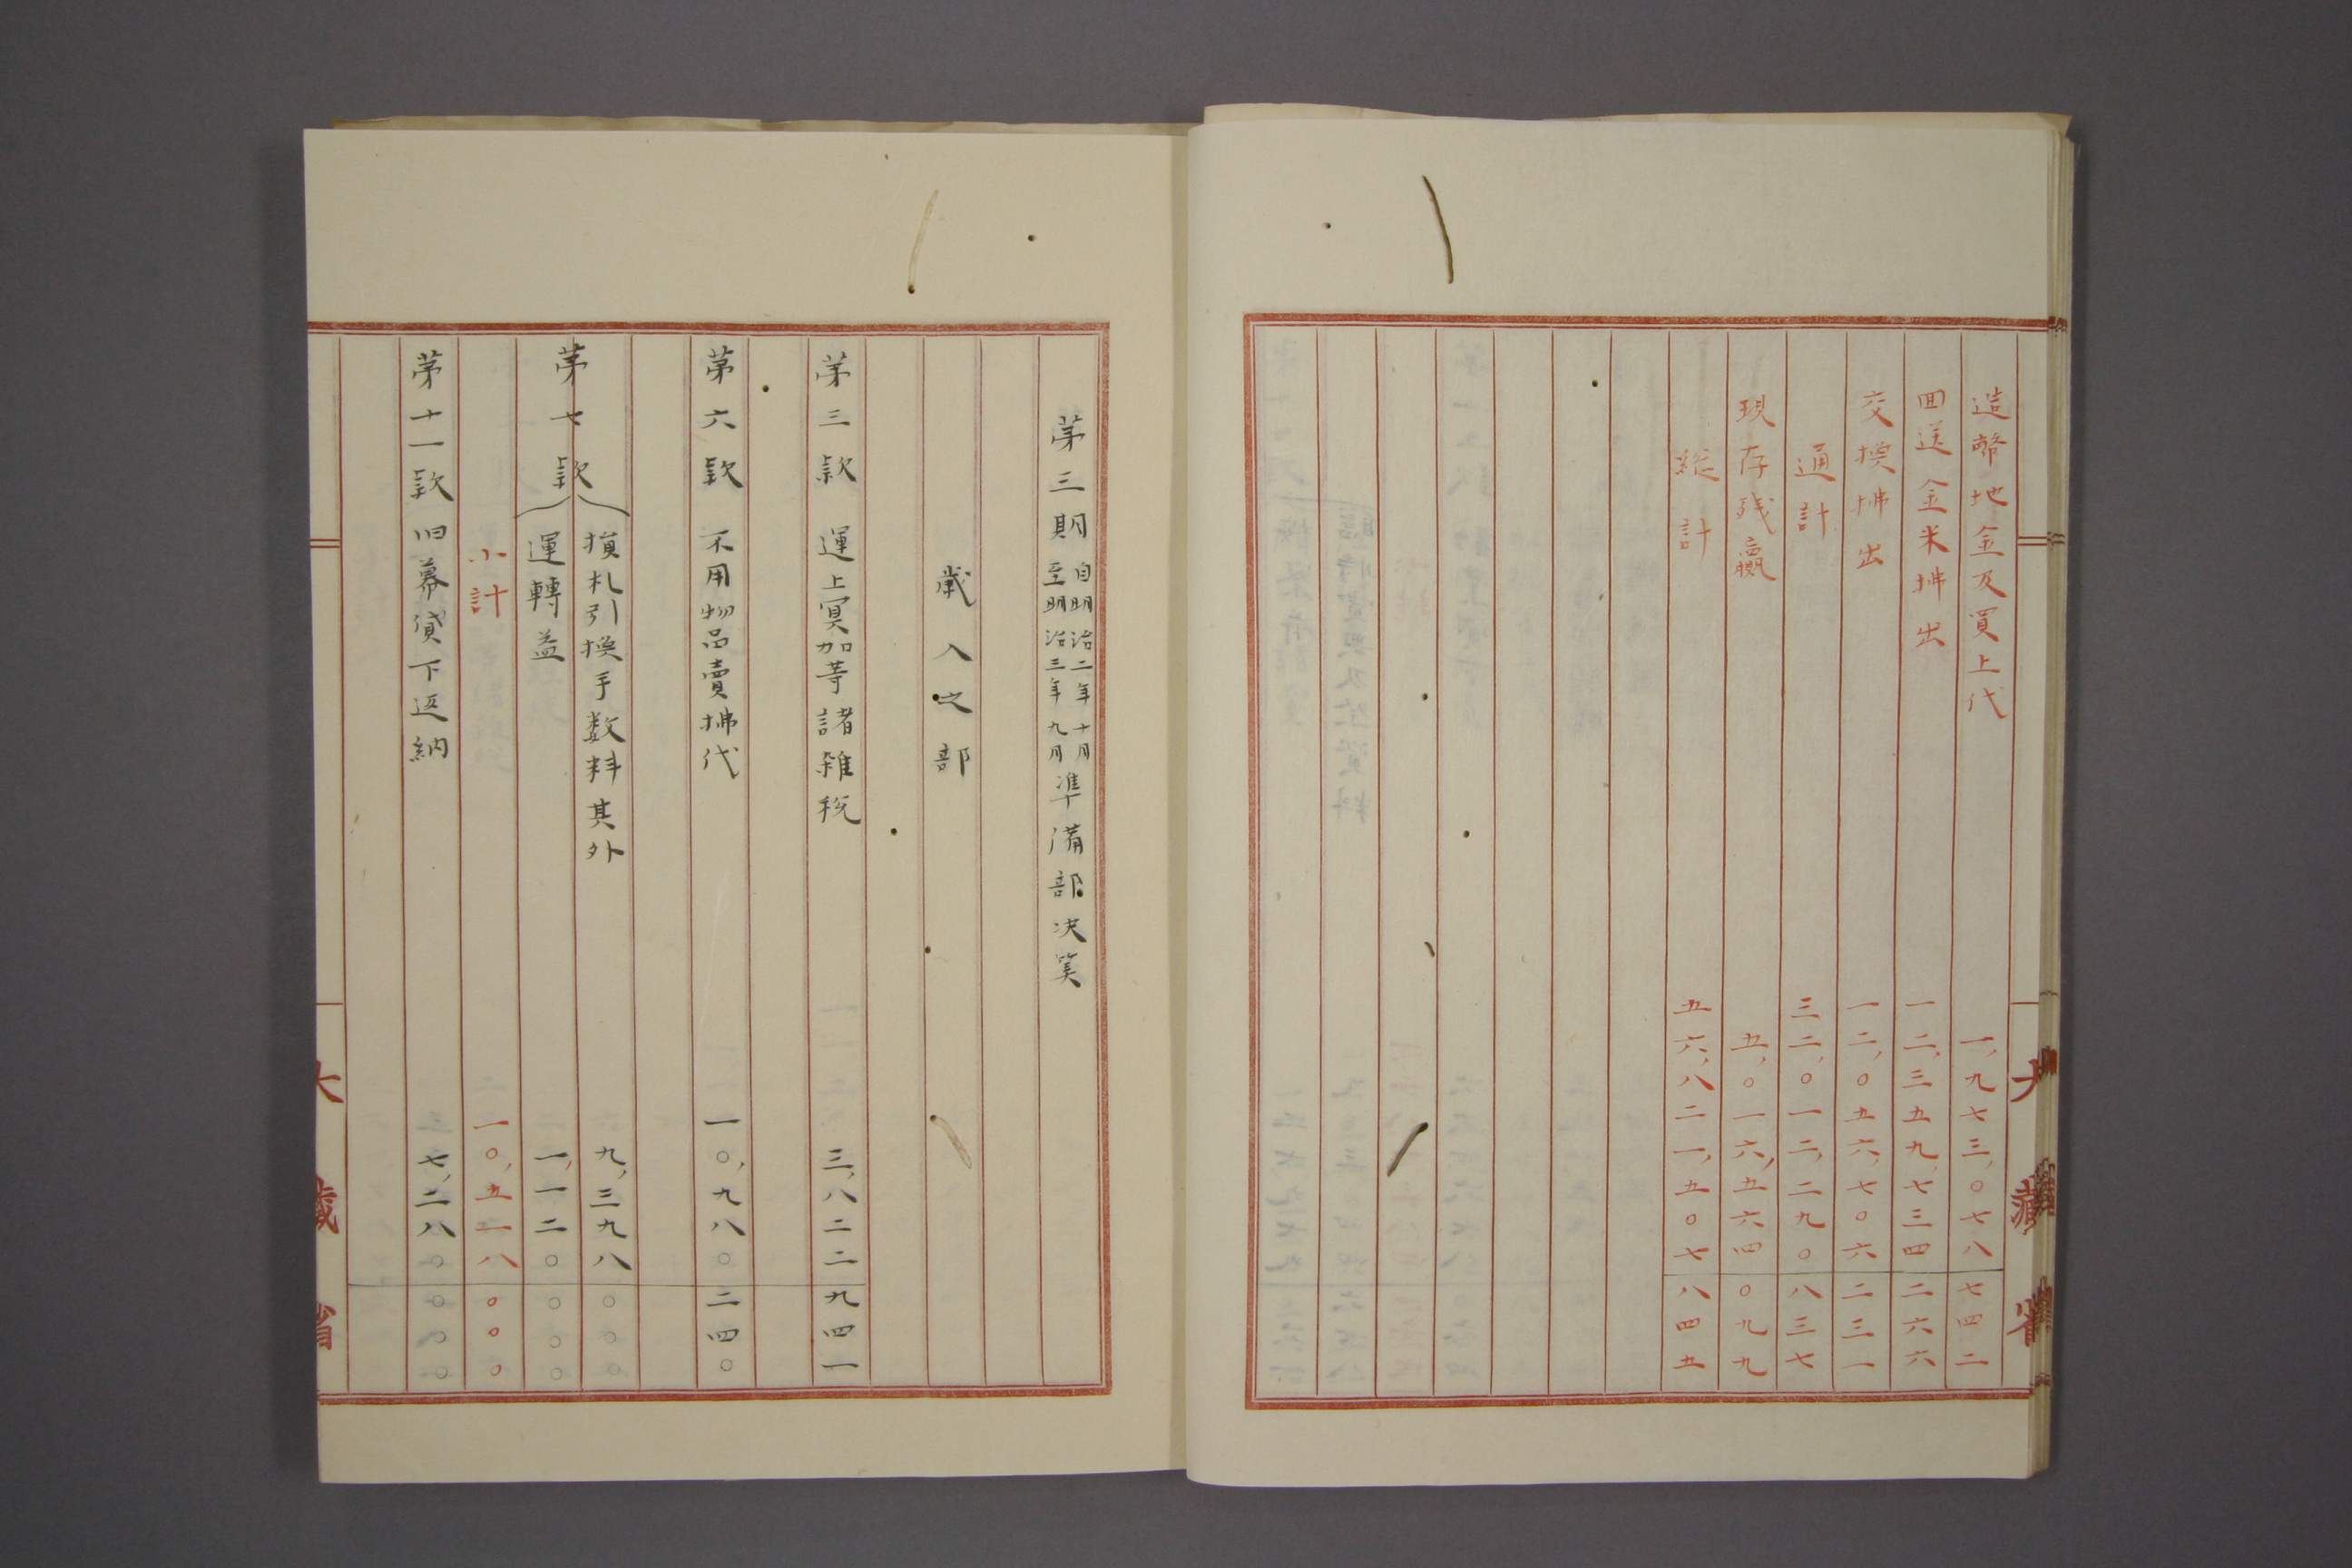 造幣地金及買上代 一、九七三、〇七八 七四二
回送金米拂出 一二、三五九、七三四 二六六
交換拂出 一二、〇五六、七〇六 二三一
通計 三二、〇一二、二九〇 八三七
現存残贏 五、〇一六、五六四 〇九九
総計 五六、八二一、五〇七 八四五
大藏省
第三期 自明治二年十月 至明治三年九月 準備部决算
歳入之部
第三款 運上冥加等諸雑税 三、八二二 九四一
第六款 不用物品賣拂代 一〇、九八〇 二四〇
第七款 損札引換手数料其外 九、三九八 〇〇〇
運轉益 一、一二〇 〇〇〇
小計 一〇、五一八 〇〇〇
第十一款 旧幕貸下返納 七、二八〇 〇〇〇
大藏省